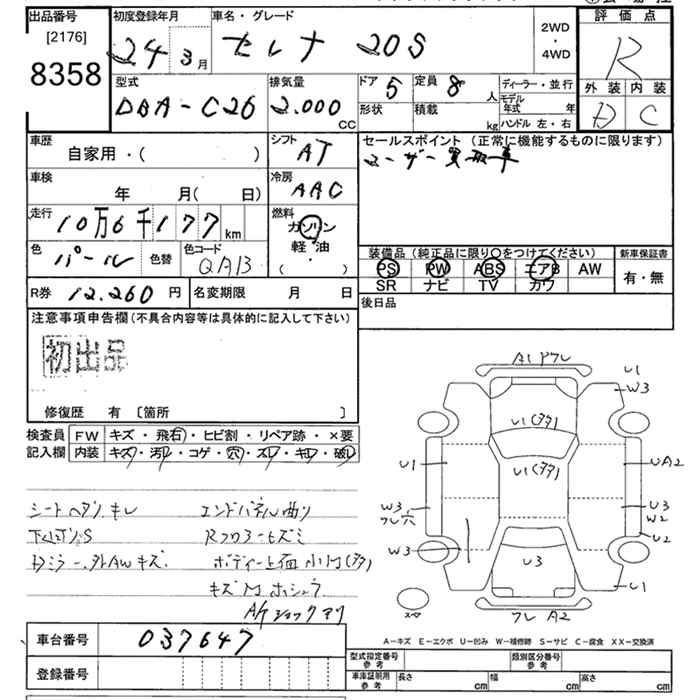 出品番号
[2176]
8358
初度登録年月
24 3月
車名・グレード
セレナ 20S
2WD
・
4WD
評価点
R
外装 内装
D C
型式
DBA-C26
排気量
2.000
CC
ドア 5
定員 8 人
形状
積載 kg
ディーラー・並行
モデル
年式 年
ハンドル 左・右
車歴
自家用・( )
シフト
AT
セールスポイント (正常に機能するものに限ります)
ユーザー買取車
車検
年 月( 日)
冷房
AAC
走行
10万6千177 km
燃料
ガソリン
軽・油
・
( )
色
パール
色替
色コード
QAB
装備品 (純正品に限り〇をつけてください)
PS PW ABS エアB AW
SR ナビ TV カワ
新車保証書
有・無
R券 12.260 円
名変期限 月 日
後日品
注意事項申告欄(不具合内容等は具体的に記入して下さい)
初出品
修復歴 有 〔箇所 〕
検査員
記入欄
FW キズ・飛石・ヒビ割・リペア跡・×要
内装 キズ・汚レ・コゲ・穴・スレ・キレ・破レ
シートヘタリ、キレ
エンドパネル曲り
下廻リS
Rフロアーヒズミ
Dミラー、外AWキズ
ボディー上面小凹(多)
キズ凹
A/Tショックアリ
A1 フレ
U1
W3
U1(多)
U1(多)
U1
UA2
W3
フレ穴
U3
W2
U2
W3
U3
U1
フレ A2
A-キズ E-エクボ U-凹み W-補修跡 S-サビ C-腐食 XX-交換済
車台番号
037647
登録番号
型式指定番号
参考
類別区分番号
参考
車庫証明用
参考
長さ cm
幅 cm
高さ cm